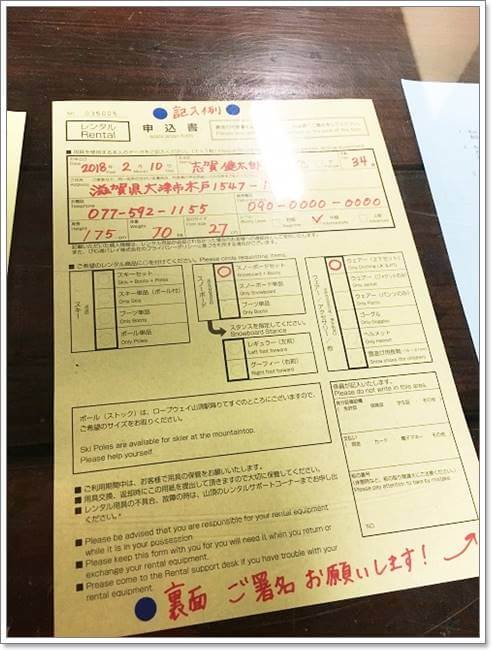 No. 035005
記入例
レンタル
Rental
申込書
2018年 2月 10日
志賀健太郎
34
滋賀県大津市木戸1547-1
077-592-1155
090-0000-0000
175 cm
70 kg
27 cm
■ ご希望のレンタル商品に○を付けてください。 Please circle requesting items.
スキー
スキーセット
Skis + Boots + Poles
スキー単品(ポール付)
Only Skis
ブーツ単品
Only Boots
ポール単品
Only Poles
スノーボード
スノーボードセット
Snowboard + Boots
スノーボード単品
Only Snowboard
ブーツ単品
Only Boots
スタンスを指定してください。
Snowboard Stance
レギュラー(左前)
Left foot forward
グーフィー(右前)
Right foot forward
ウェアー(上下セット)
ウェアー(ジャケットのみ)
Only Jacket
ウェアー(パンツのみ)
Only Pants
ゴーグル
Only Goggles
ヘルメット
Only Helmet
ポール(ストック)は、ロープウェイ山頂駅降りてすぐのところにございますので、
ご希望のサイズをお取りください。
Ski Poles are available for skier at the mountaintop.
Please help yourself.
係員が記入いたします。
Please do not write in this area.
免許証 保険証 学生証 その他
支払い
現金 カード 電子マネー その他
Please pay attention to take by mistake.
NO.
■ ご利用期間中は、お客様で用具の保管をお願いいたします。
■ 用具交換、返却時にこの用紙を提出して頂きますので大切に保管してください。
■ レンタル用具の不具合、故障の時は、山頂のレンタルサポートコーナーまでお申し出ください。
■ Please be advised that you are responsible for your rental equipment
while it is in your possession.
■ Please keep this form with you for you will need it when you return or
exchange your rental equipment.
■ Please come to the Rental support desk if you have trouble with your
rental equipment.
裏面 ご署名 お願いします!